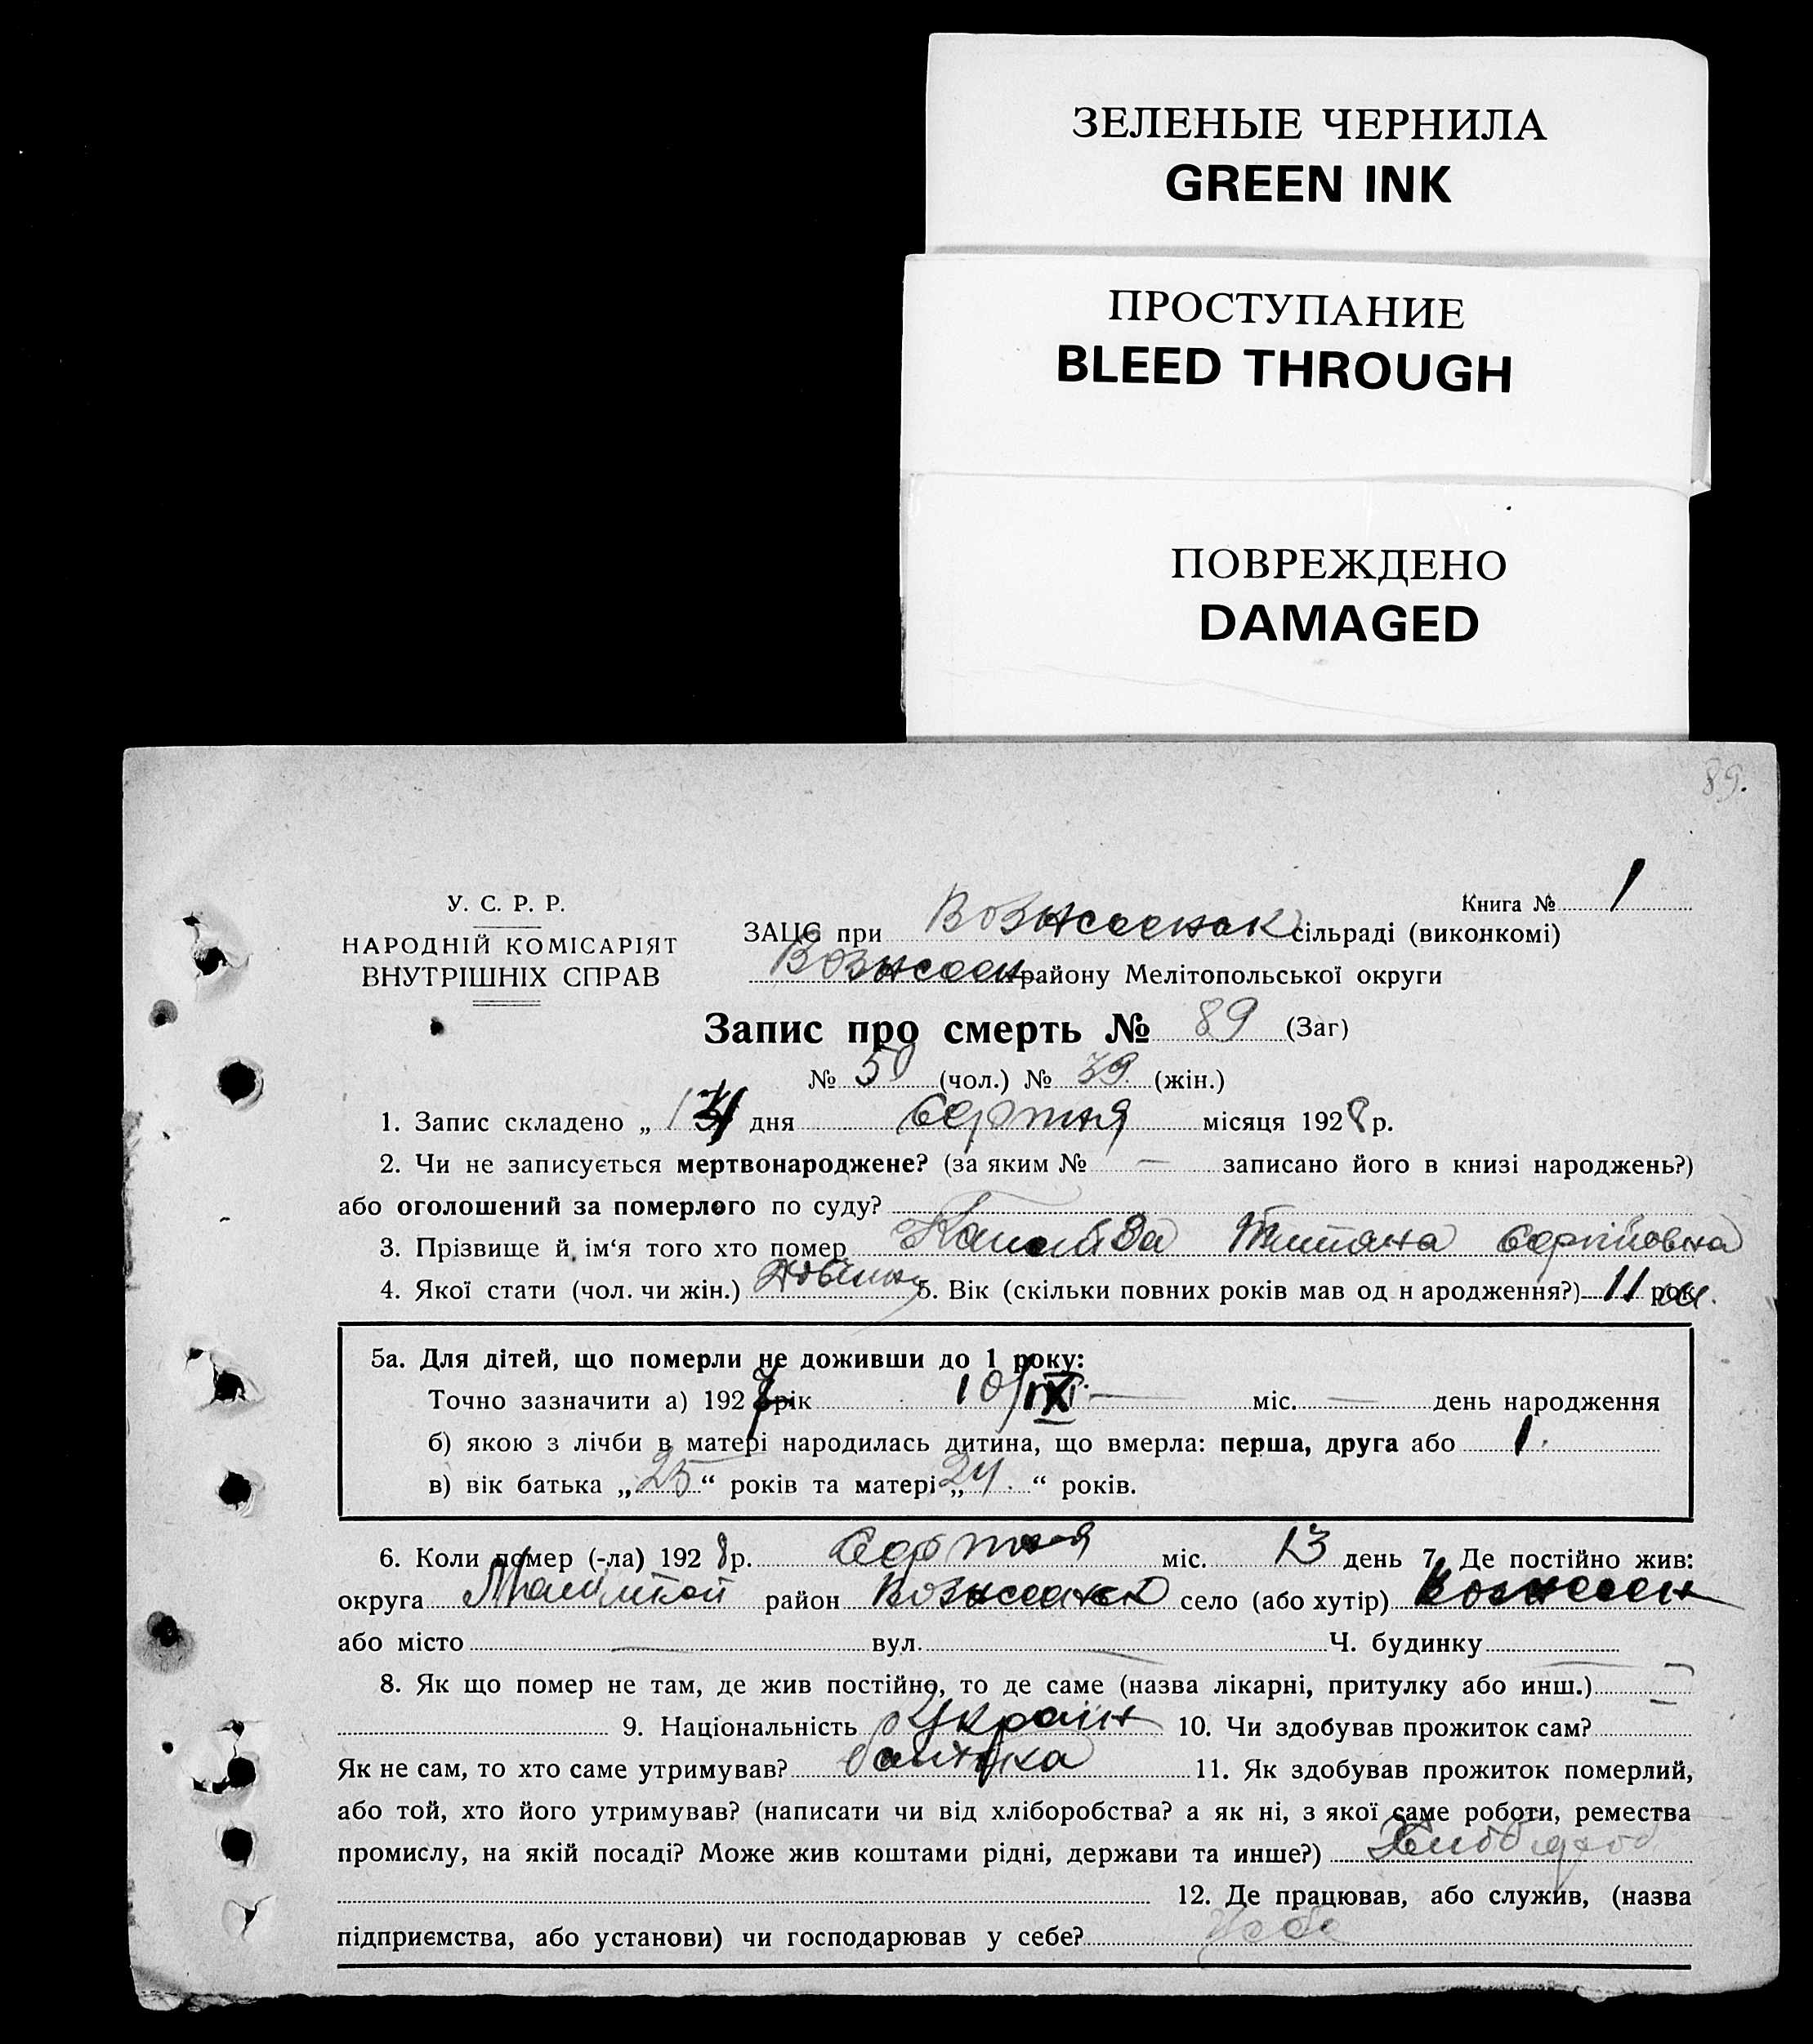 ЗЕЛЕНЫЕ ЧЕРНИЛА
GREEN INK
ПРОСТУПАНИЕ
BLEED THROUGH
ПОВРЕЖДЕНО
DAMAGED
89.
У. С. Р. Р.
НАРОДНІЙ КОМІСАРІЯТ
ВНУТРІШНІХ СПРАВ
Книга № 1
ЗАЦС при Вознесенск сільраді (виконкомі)
Вознесен району Мелітопольської округи
Запис про смерть № 89 (Заг)
№ 50 (чол.) № 39 (жін.)
1. Запис складено „ дня серпня місяця 1928 р.
2. Чи не записується мертвонароджене? (за яким № — записано його в книзі народжень?)
або оголошений за померлого по суду?
3. Прізвище й ім‘я того хто помер Сергіївна
4. Якої стати (чол. чи жін.) 5. Вік (скільки повних років мав од н ародження?) 11 рок
5а. Для дітей, що померли не доживши до 1 року:
Точно зазначити а) 1927 рік 10/IX — міс. — день народження
б) якою з лічби в матері народилась дитина, що вмерла: перша, друга або 1.
в) вік батька „25“ років та матері „24“ років.
6. Коли помер (-ла) 1928 р. Серпня міс. 13 день 7. Де постійно жив:
округа район Вознесенск село (або хутір) Вознесен
або місто — вул. — Ч. будинку —
8. Як що помер не там, де жив постійно, то де саме (назва лікарні, притулку або инш.) —
9. Національність Україн 10. Чи здобував прожиток сам? —
Як не сам, то хто саме утримував? батька 11. Як здобував прожиток померлий,
або той, хто його утримував? (написати чи від хліборобства? а як ні, з якої саме роботи, ремества
промислу, на якій посаді? Може жив коштами рідні, держави та инше?) Хлібороб
12. Де працював, або служив, (назва
підприємства, або установи) чи господарював у себе? У себе